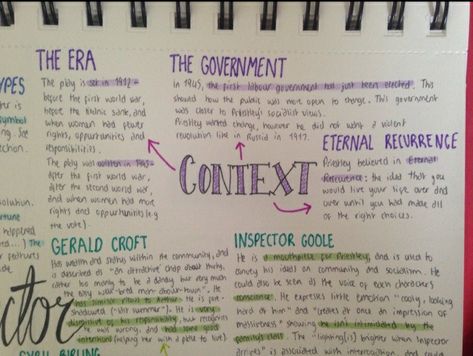 THE ERA
The play is set in 1912 -
before the first world war,
before the titanic sank, and
when women had fewer
rights, opportunities and
responsibilities.
The play was written in 1945
after the first world war,
after the second world war,
and when women had more
rights and opportunities (e.g
the vote).
THE GOVERNMENT
In 1945, the first labour government had just been elected. This
should how the public was more open to change. This government
was closer to Priestley's socialist views.
Priestley wanted change, however he did not want a violent
revolution like in Russia in 1917.
ETERNAL RECURRENCE
Priestley believed in Eternal
Recurrence: the idea that you
would live your life over and
over until you had made all
of the right choices.
CONTEXT
YPES
symbol
ction.
olution.
happened
GERALD CROFT
Has wealth and status within the community, and
is described as "An attractive chap about thirty,
rather too manly to be a dandy but very much
the easy well-bred man-about-town". He
has similar ideals to Arthur. He is
shadowed ("all summer"). He is very
of his responsibility, but recognises
he was wrong, and had some good
intentions (helping her with a place to live)
INSPECTOR GOOLE
He is a mouthpiece for Priestley, and is used to
convey his ideas on community and socialism. He
could also be seen as the voice of each characters
conscience. He expresses little emotion "coolly, looking
hard at him" and "creates at once an impression of
massiveness" showing he isn't intimidated by the
class. The "lighting [is] brighter when Inspector
arrives" is associated with interrogation and
ctor
BIRLING